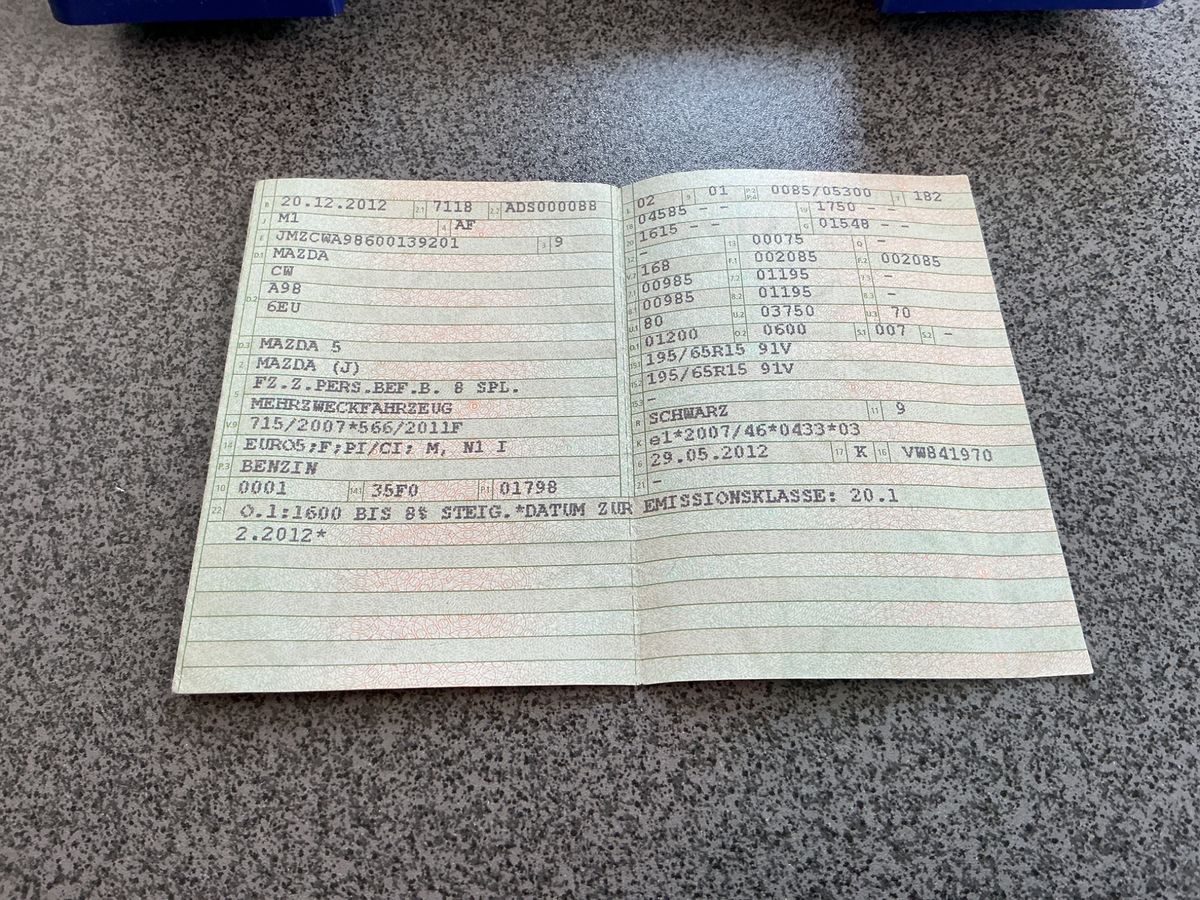 B 20.12.2012 2.1 7118 2.2 ADS000088
J M1 4 AF
E JMZCWA98600139201 3 9
D.1 MAZDA
CW
D.2 A98
6EU
D.3 MAZDA 5
2 MAZDA (J)
5 FZ.Z.PERS.BEF.B. 8 SPL.
MEHRZWECKFAHRZEUG
V.9 715/2007*566/2011F
14 EURO5;F;PI/CI; M, N1 I
P.3 BENZIN
10 0001 14.1 35F0 P.1 01798
L 02 9 01 P.2 P.4 0085/05300 T 182
18 04585 - - 19 1750 -
20 1615 - - G 01548 - -
12 - 13 00075 Q -
V.7 168 F.1 002085 F.2 002085
7.1 00985 7.2 01195 7.3 -
8.1 00985 8.2 01195 8.3 -
U.1 80 U.2 03750 U.3 70
O.1 01200 O.2 0600 S.1 007 S.2 -
15.1 195/65R15 91V
15.2 195/65R15 91V
15.3 -
R SCHWARZ 11 9
K e1*2007/46*0433*03
6 29.05.2012 17 K 16 VW841970
21 -
22 O.1:1600 BIS 8% STEIG.*DATUM ZUR EMISSIONSKLASSE: 20.1
2.2012*